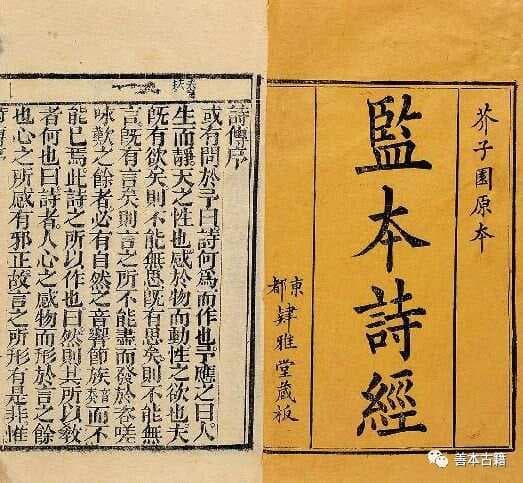 芥子園原本
監本詩經
東都
肄雅堂藏板
詩傳序
或有問於予曰詩何爲而作也予應之曰人
生而靜天之性也感於物而動性之欲也夫
旣有欲矣則不能無思旣有思矣則不能無
言旣有言矣則言之所不能盡而發於咨嗟
咏歎之餘者必有自然之音響節族而不
能已焉此詩之所以作也曰然則其所以教
者何也曰詩者人心之感物而形於言之餘
也心之所感有邪正故言之所形有是非惟
善本古籍